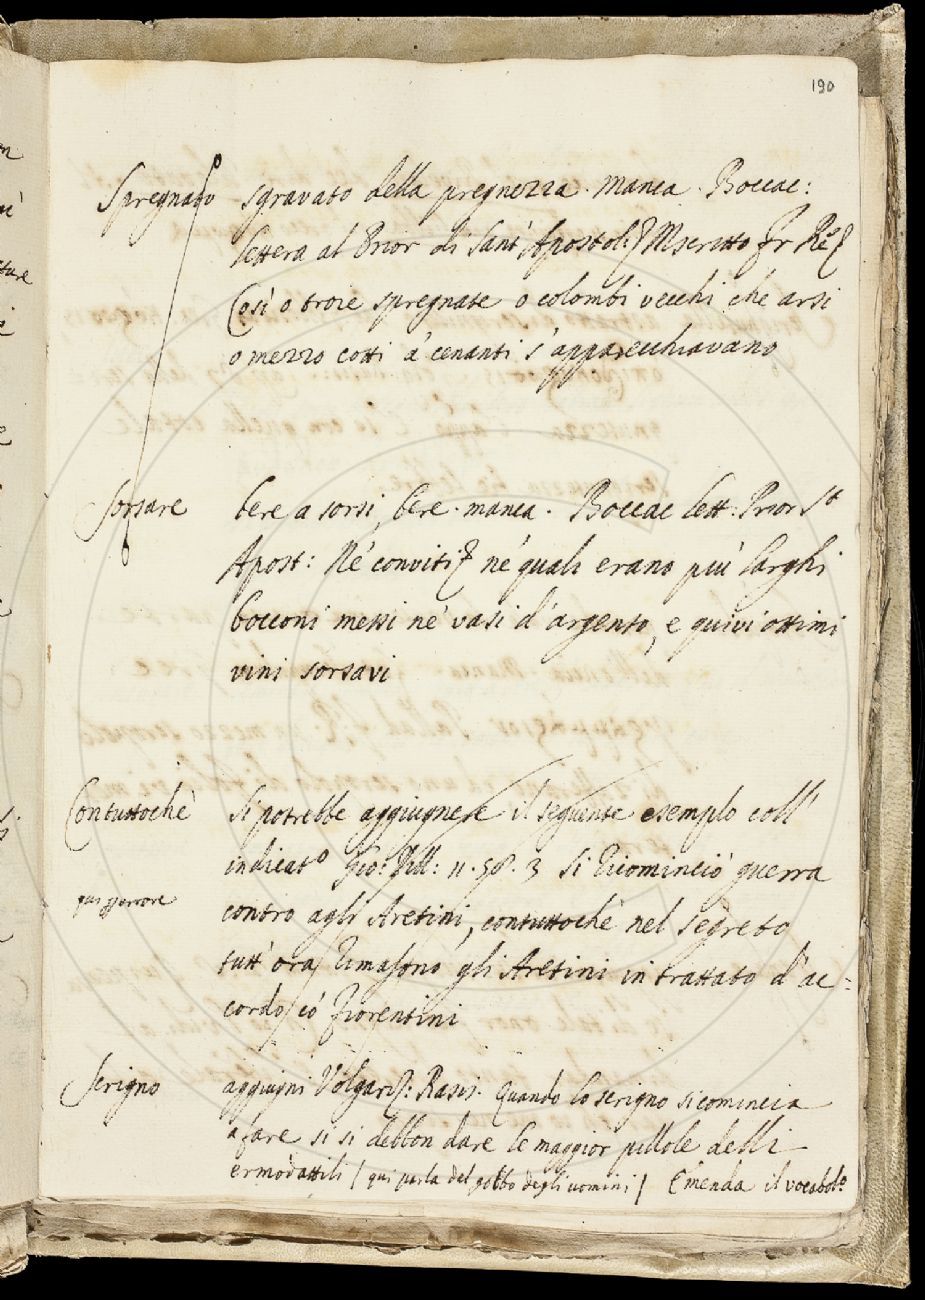 190
Spregnato sgravato della pregnezza. manca. Boccac:
lettera al Prior di Sant' Apostol: Mscritto Fr Re
Così o troie spregnate o colombi vecchi che arsi
o mezzo cotti a' cenanti s'apparecchiavano
Sorsare bere a sorsi, bere. manca. Boccac lett: Prior St
Apost: Ne' conviti ne' quali erano più larghi
bocconi messi ne' vasi d'argento, e quivi ottimi
vini sorsavi
Contuttochè Si potrebbe aggiugnere il seguente esemplo coll'
indicato Gio: Vill: 11. 58. 3 Si ricominciò guerra
contro agli Aretini, contuttochè nel segreto
tutt'ora rimasono gli Aretini in trattato d'ac=
cordo co' Fiorentini
Serigno aggiugni Volgariz: Rasis. Quando lo serigno si comincia
a fare si si debbon dare le maggior pillole delli
ermodattili / qui parla del gobbo degli uomini / Emenda il vocabolo